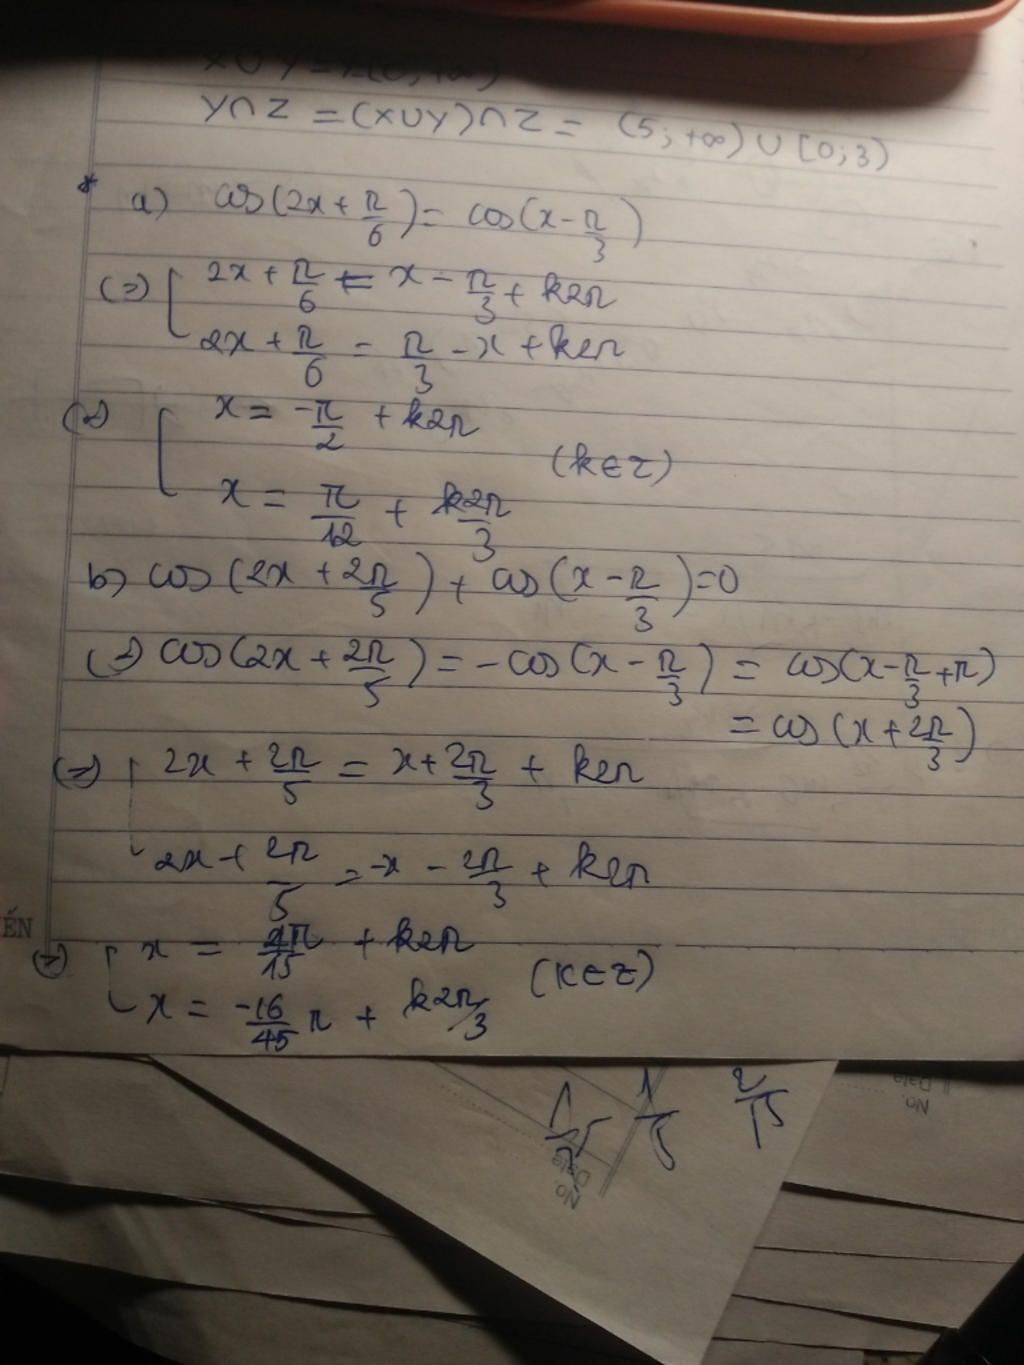 X∪Y = (0; +∞)
Y∩Z = (X∪Y)∩Z = (5; +∞) ∪ [0; 3)
* a) cos(2x + π/6) = cos(x - π/3)
(=) [ 2x + π/6 = x - π/3 + k2π
2x + π/6 = π/3 - x + k2π
(=) [ x = -π/2 + k2π
(k∈Z)
x = π/12 + k2π/3
b) cos(2x + 2π/5) + cos(x - π/3) = 0
(=) cos(2x + 2π/5) = -cos(x - π/3) = cos(x - π/3 + π)
= cos(x + 2π/3)
(=) [ 2x + 2π/5 = x + 2π/3 + k2π
2x + 2π/5 = -x - 2π/3 + k2π
ẾN
(=) [ x = 4π/15 + k2π
(k∈Z)
x = -16/45 π + k2π/3
1/5
2/15
No.
Date
No.
Date